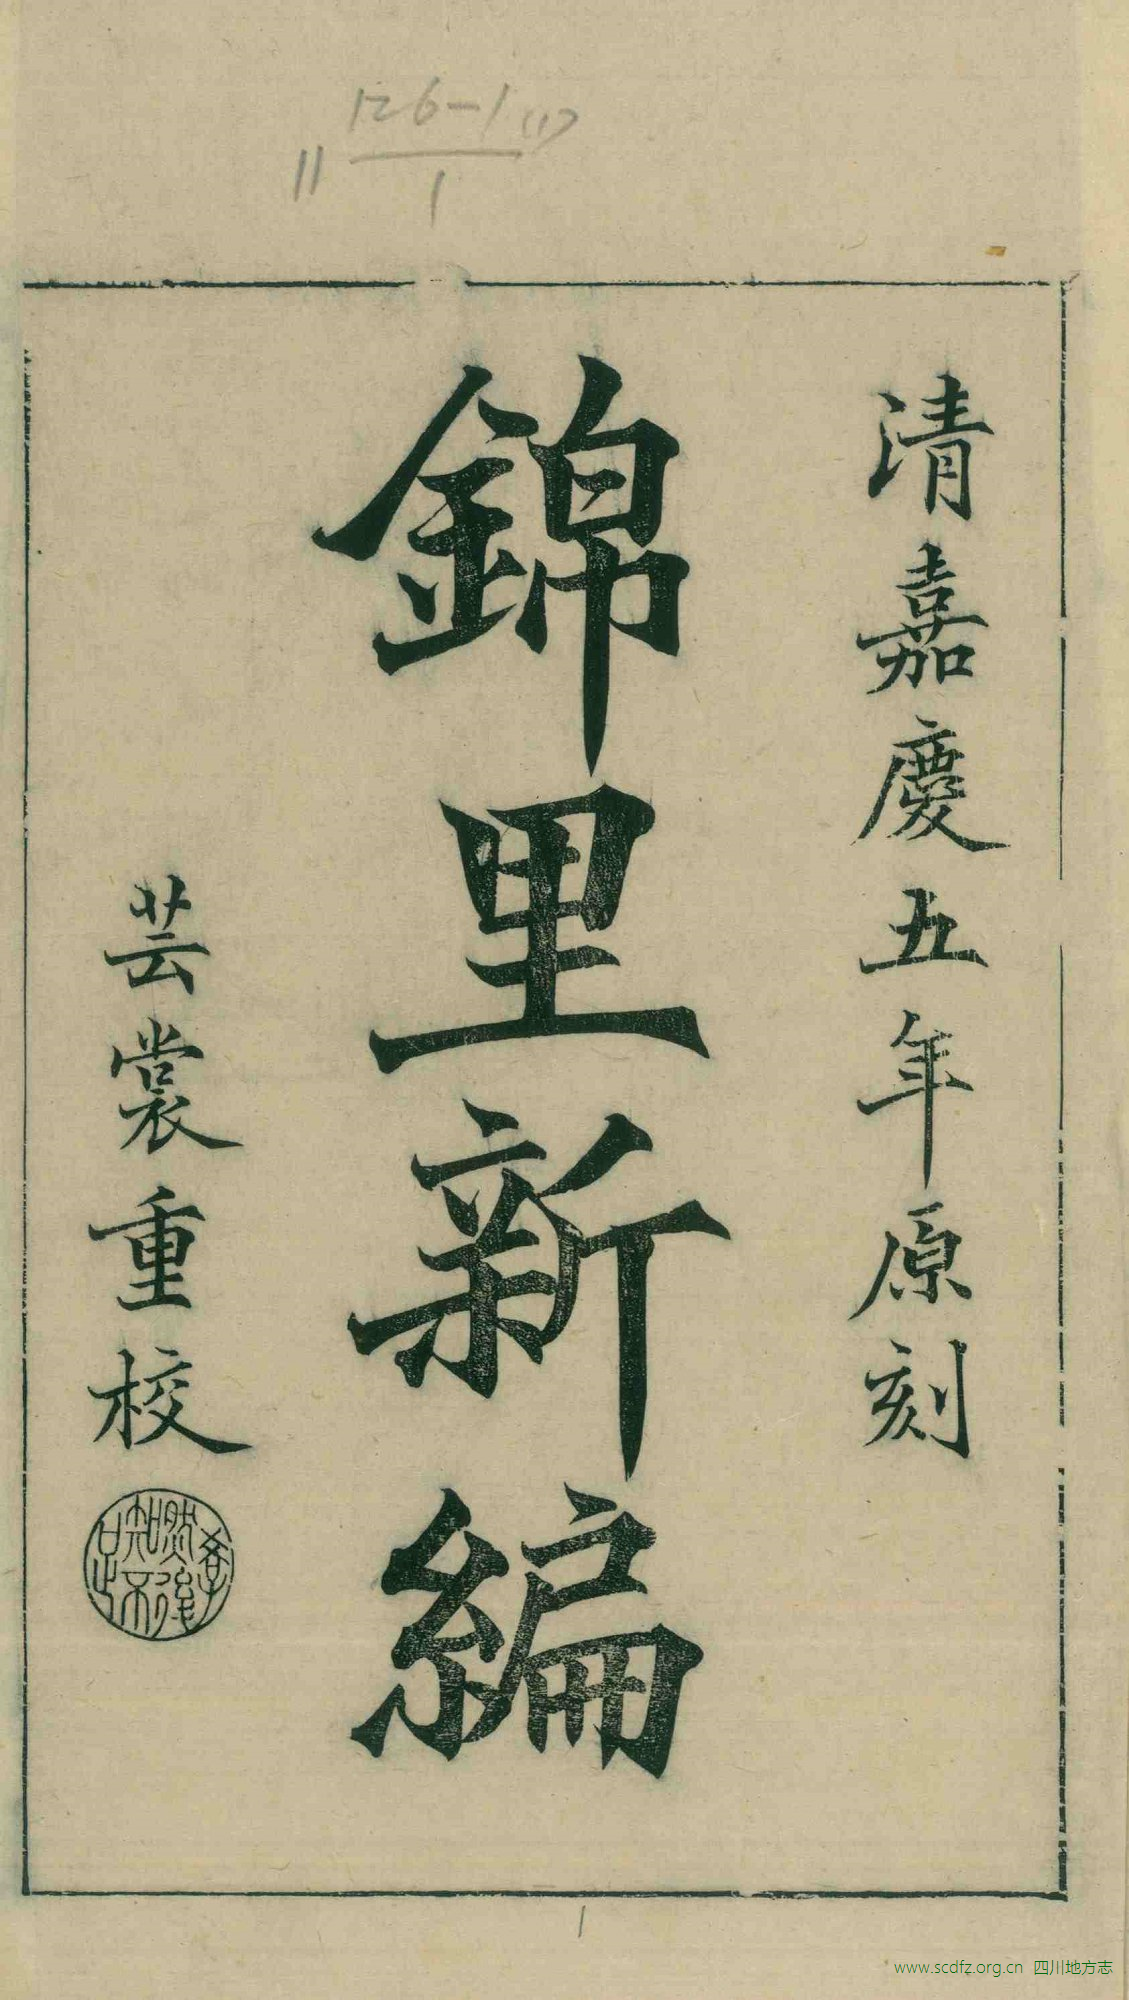 126-1(1)
11
1
清嘉慶五年原刻
錦里新編
芸裳重校
學然後知不足
1
www.scdfz.org.cn 四川地方志